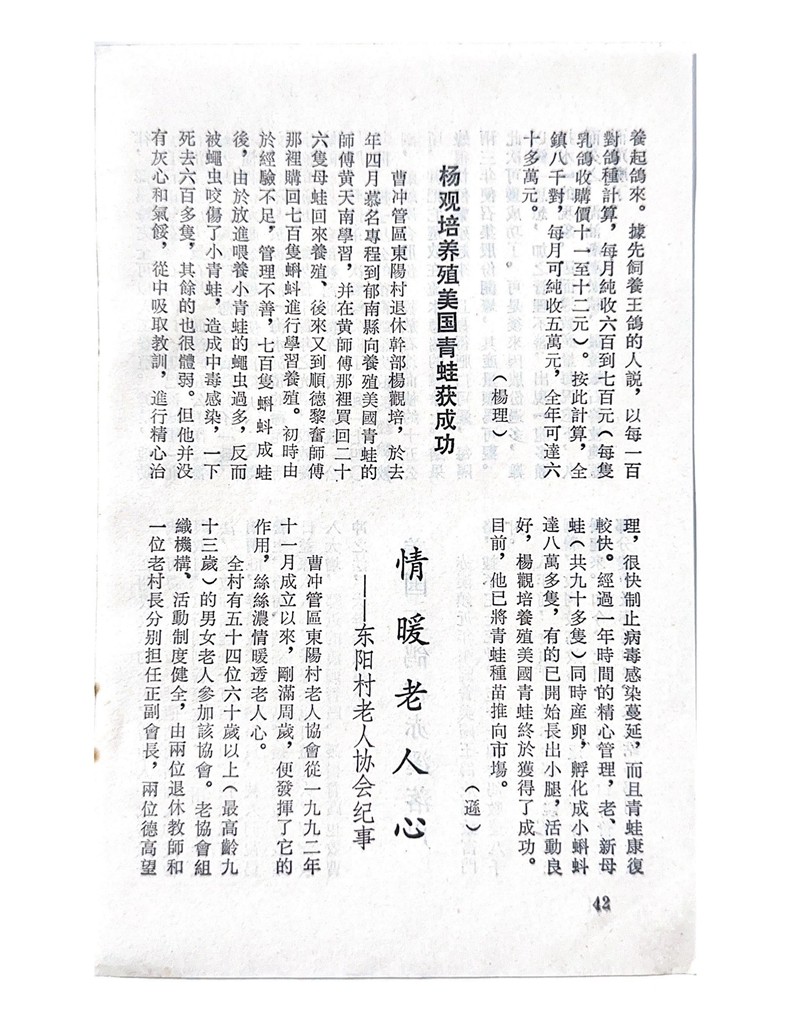 養起鴿來。據先飼養王鴿的人説，以每一百
對鴿種計算，每月純收六百到七百元（每隻
乳鴿收購價十一至十二元）。按此計算，全
鎮八千對，每月可純收五萬元，全年可達六
十多萬元。
（楊理）
杨观培养殖美国青蛙获成功
曹冲管區東陽村退休幹部楊觀培，於去
年四月慕名專程到郁南縣向養殖美國青蛙的
師傅黄天南學習，并在黄師傅那裡買回二十
六隻母蛙回來養殖、後來又到順德黎奮師傅
那裡購回七百隻蝌蚪進行學習養殖。初時由
於經驗不足，管理不善，七百隻蝌蚪成蛙
後，由於放進喂養小青蛙的蠅虫過多，反而
被蠅虫咬傷了小青蛙，造成中毒感染，一下
死去六百多隻，其餘的也很體弱。但他并没
有灰心和氣餒，從中吸取教訓，進行精心治
理，很快制止病毒感染蔓延，而且青蛙康復
較快。經過一年時間的精心管理，老、新母
蛙（共九十多隻）同時産卵，孵化成小蝌蚪
達八萬多隻，有的已開始長出小腿，活動良
好，楊觀培養殖美國青蛙終於獲得了成功。
目前，他已將青蛙種苗推向市場。
（遜）
情暖老人心
——东阳村老人协会纪事
曹冲管區東陽村老人協會從一九九二年
十一月成立以來，剛滿周歲，便發揮了它的
作用，絲絲濃情暖透老人心。
全村有五十四位六十歲以上（最高齡九
十三歲）的男女老人參加該協會。老協會組
織機構、活動制度健全，由兩位退休教師和
一位老村長分别担任正副會長，兩位德高望
42